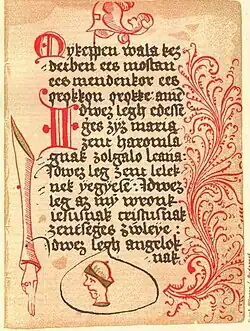 Mykeppen wala kez
detben ees mostan
ees mendenkor ees
orokkon orokke: amē
Idwez legh edesse
ges zyz maria
zent haromſa
gnak zolgalo leania:
Idwez leg zent lelek
nek yegyeſe: Idwez
leg az my wronk
ieſusnak criſtuſnak
zentſeges zwleye:
Idwez legh angelok
nak